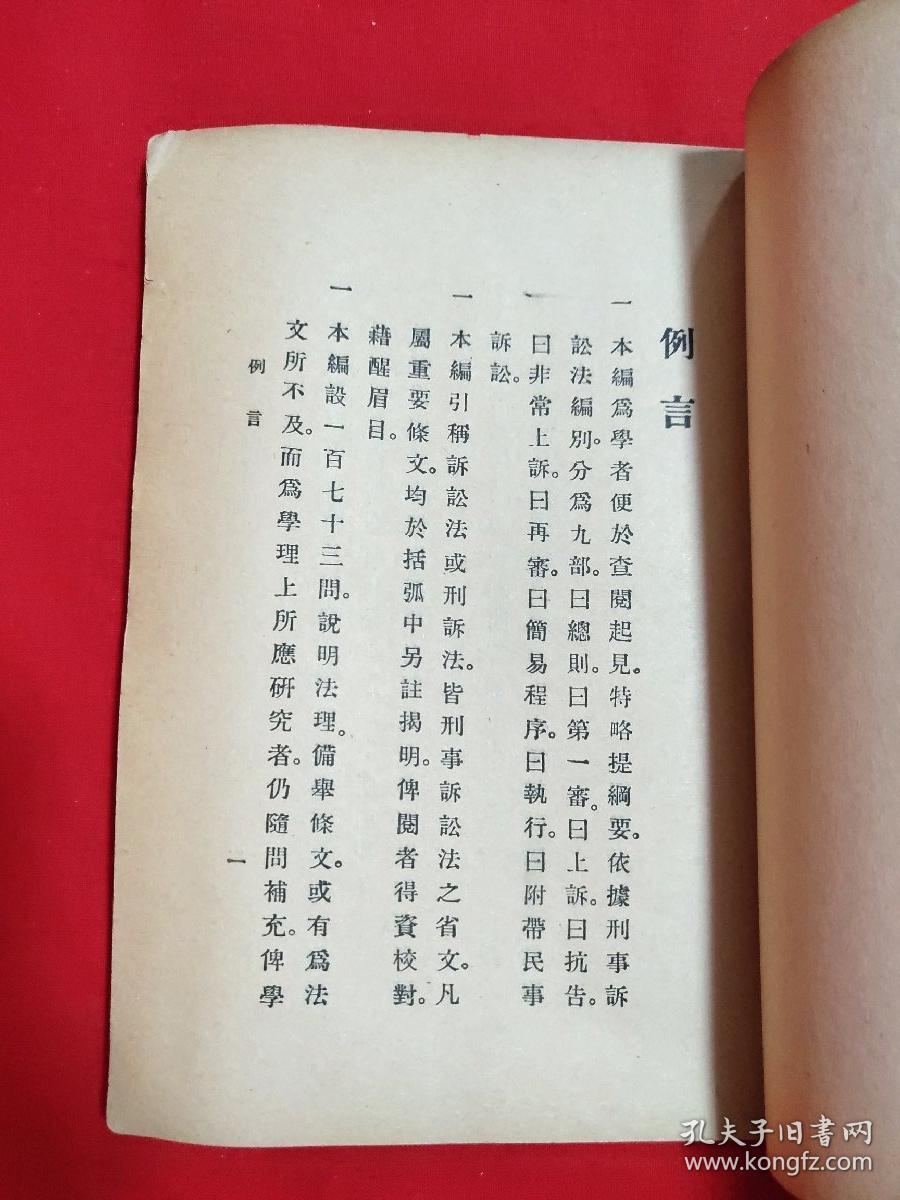 例言
一 本編爲學者便於查閱起見。特略提綱要。依據刑事訴
訟法編別。分爲九部。曰總則。曰第一審。曰上訴。曰抗告。
一 曰非常上訴。曰再審。曰簡易程序。曰執行。曰附帶民事
訴訟。
一 本編引稱訴訟法或刑訴法。皆刑事訴訟法之省文。凡
屬重要條文。均於括弧中另註揭明。俾閱者得資校對。
藉醒眉目。
一 本編設一百七十三問。說明法理。備舉條文。或有爲法
文所不及。而爲學理上所應研究者。仍隨問補充。俾學
例言
一
孔夫子旧书网
www.kongfz.com